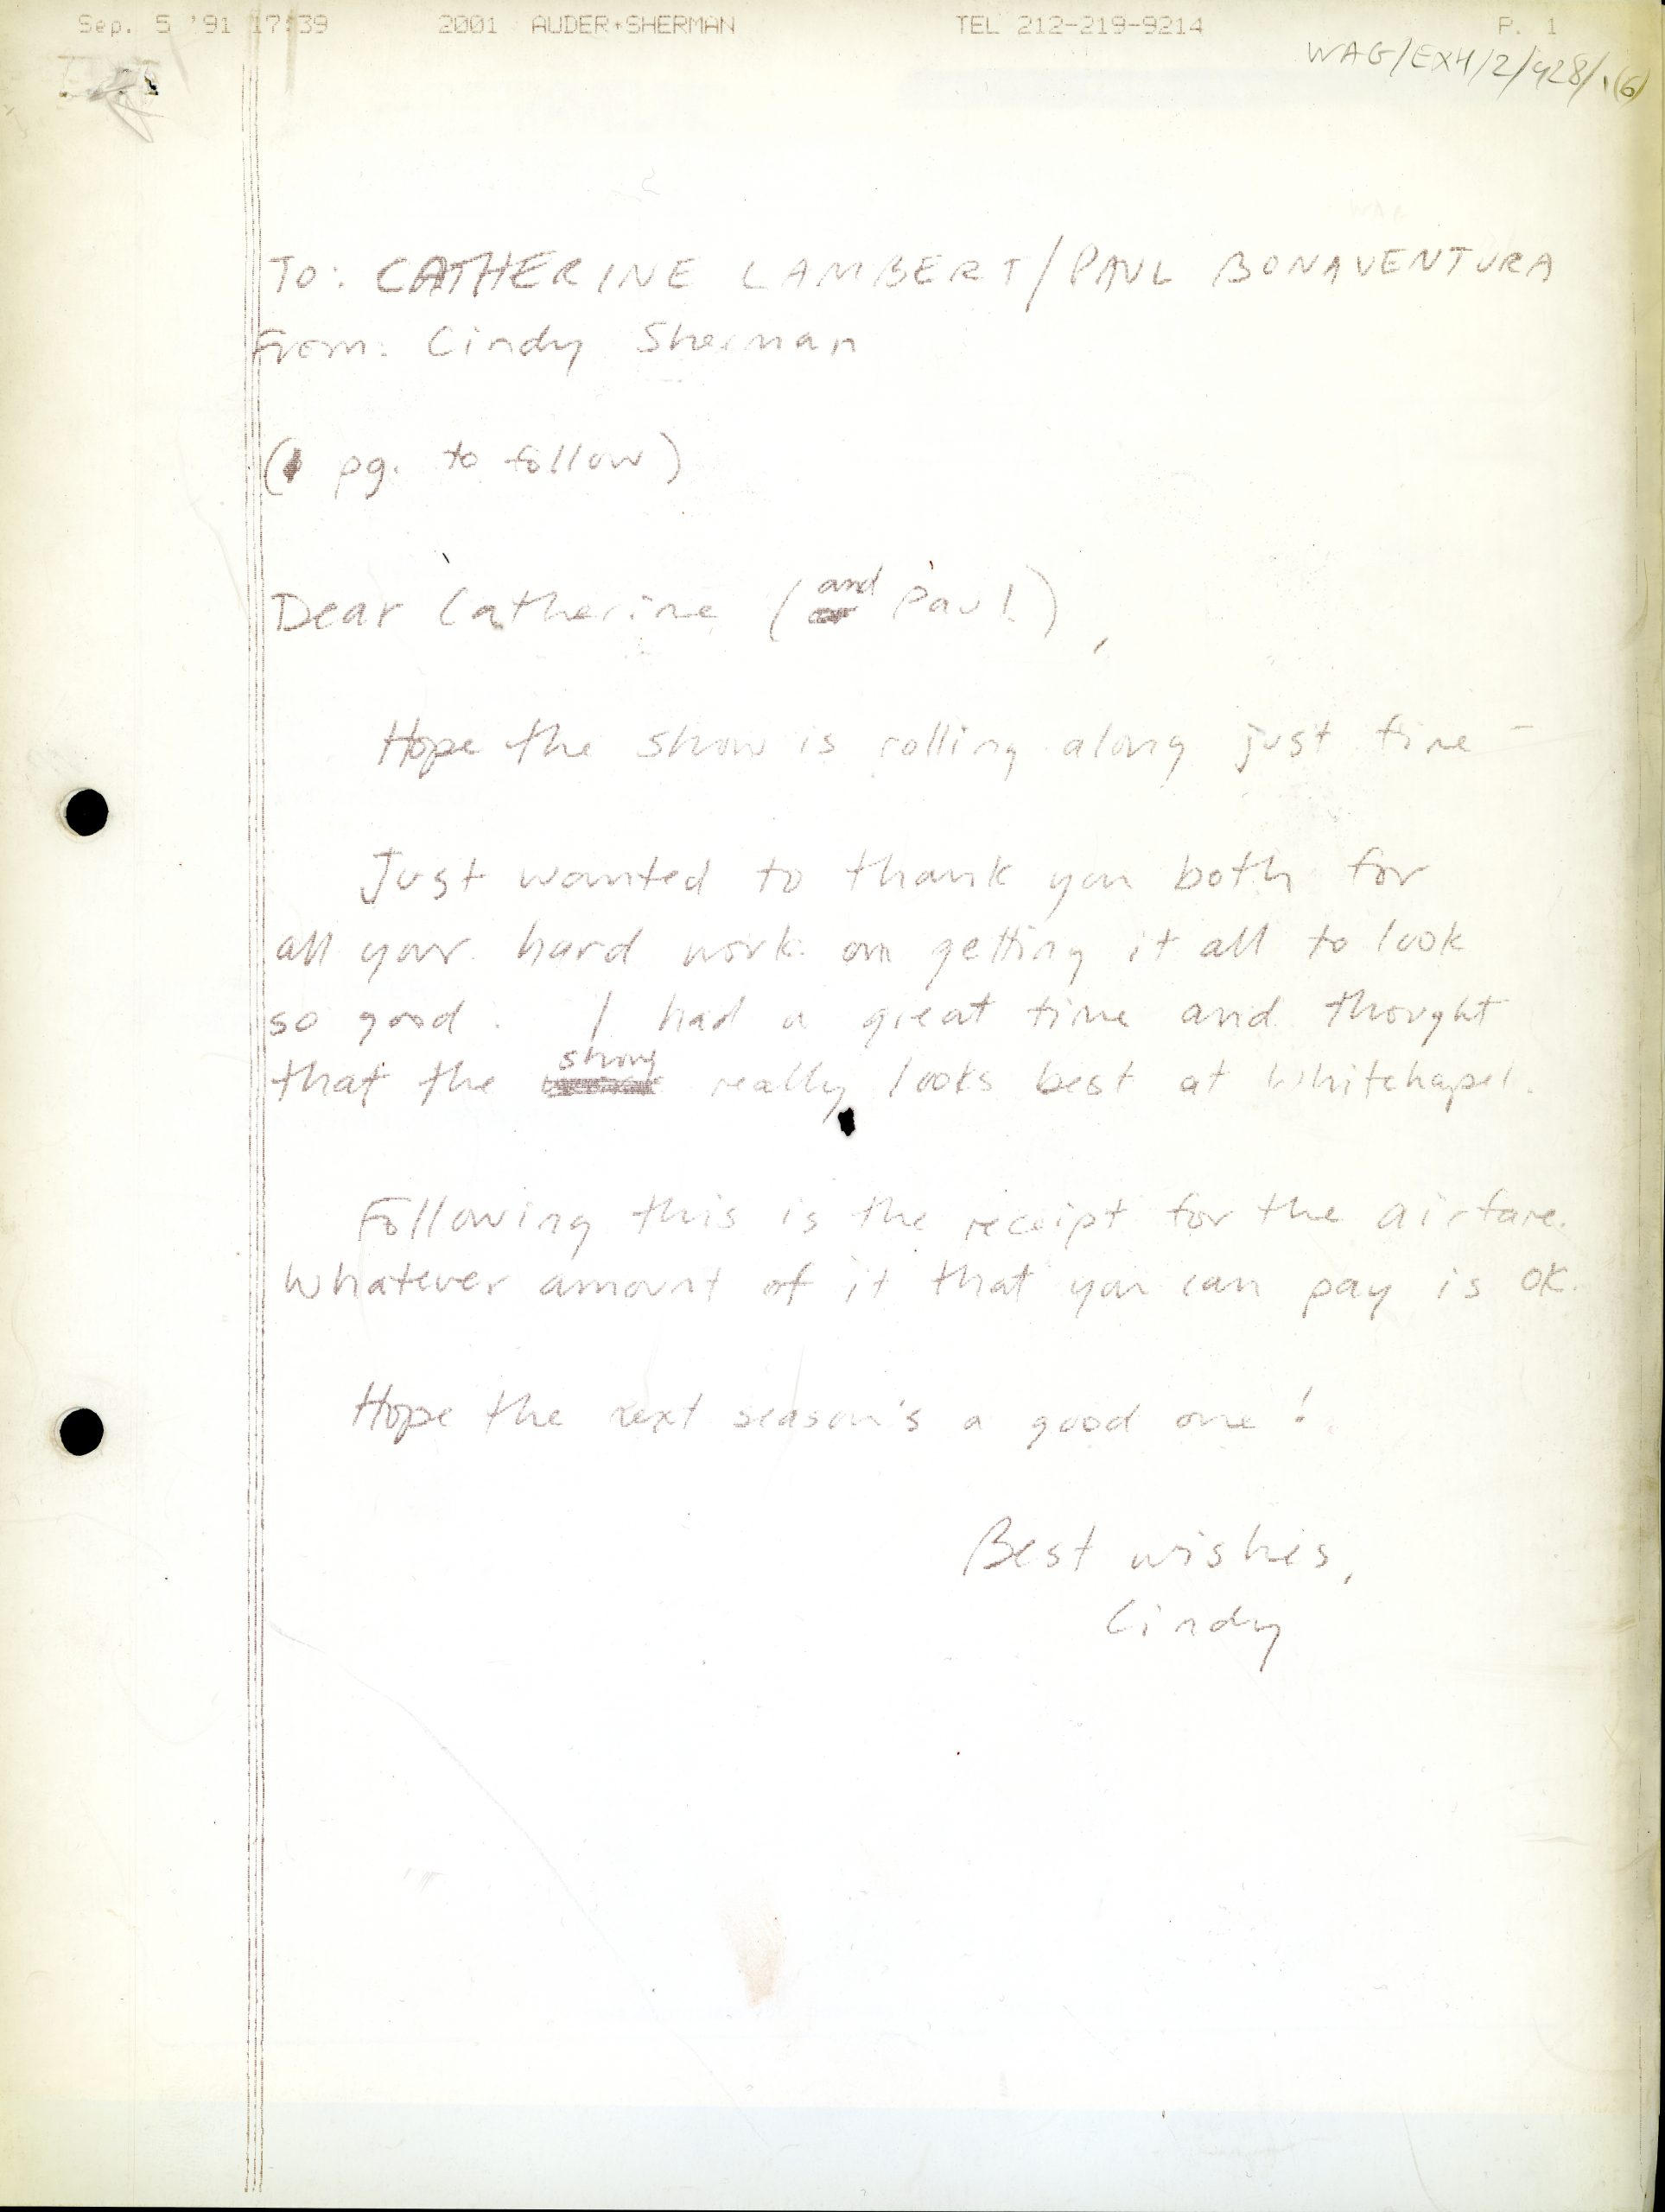 Sep. 5 '91 17:39 2001 AUDER+SHERMAN TEL 212-219-9214 P. 1
WAG/EXH/2/428/1(6)
TO: CATHERINE LAMBERT/PAUL BONAVENTURA
From: Cindy Sherman
(1 pg. to follow)
Dear Catherine (and Paul),
Hope the show is rolling along just fine -
Just wanted to thank you both for
all your hard work on getting it all to look
so good. I had a great time and thought
that the show really looks best at Whitehapel.
Following this is the receipt for the airfare.
Whatever amount of it that you can pay is OK.
Hope the next season's a good one!
Best wishes,
Cindy